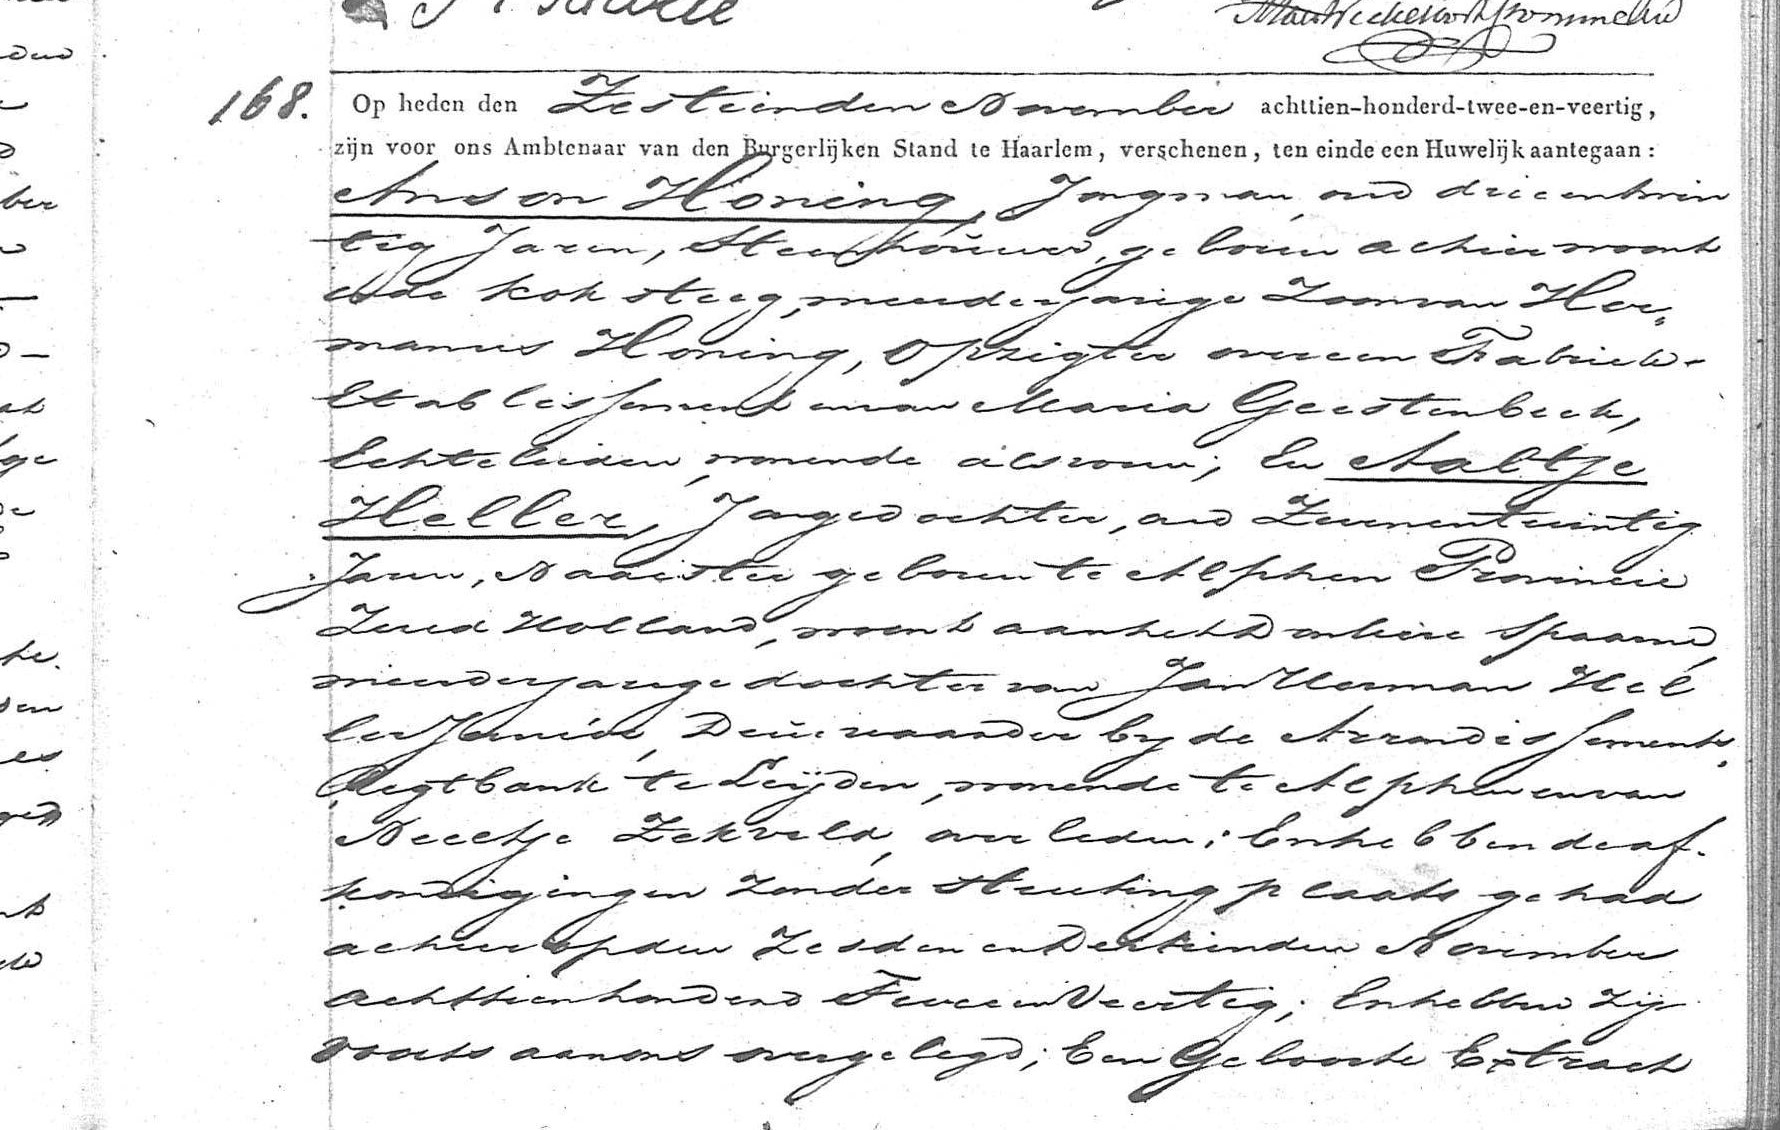 168.
Op heden den Zestienden November achttien-honderd-twee-en-veertig,
zijn voor ons Ambtenaar van den Burgerlijken Stand te Haarlem, verschenen, ten einde een Huwelijk aantegaan:
Anson Honing, Jongman, oud drieentwin
tig Jaren, Steenhouwer, geboren alhier woont
in de Koksteeg, meerderjarige Zoon van Her,,
manus Honing, Opzigter over een Fabriek-
Etablissement en van Maria Geestenbeek,
Echtelieden, wonende alsvoren; En Aaltje
Heller, Jongedochter, oud Zevenentwintig
Jaren, Naaister geboren te Alphen Provincie
Zuid Holland, woont aan het Donkere Spaarne,
meerderjarige dochter van Jan Herman Hel
ler Junior, Deurwaarder by de Arrondissements,,
Regtbank te Leijden, wonende te Alphen en van
Neeltje Zekveld, overleden; En hebben de af-
kondigingen zonder stuiting plaats gehad
alhier op den Zesden en Dertienden November
achttienhonderd Twee en Veertig; En hebben zij
voorts aan ons overgelegd; Een Geboorte Extract